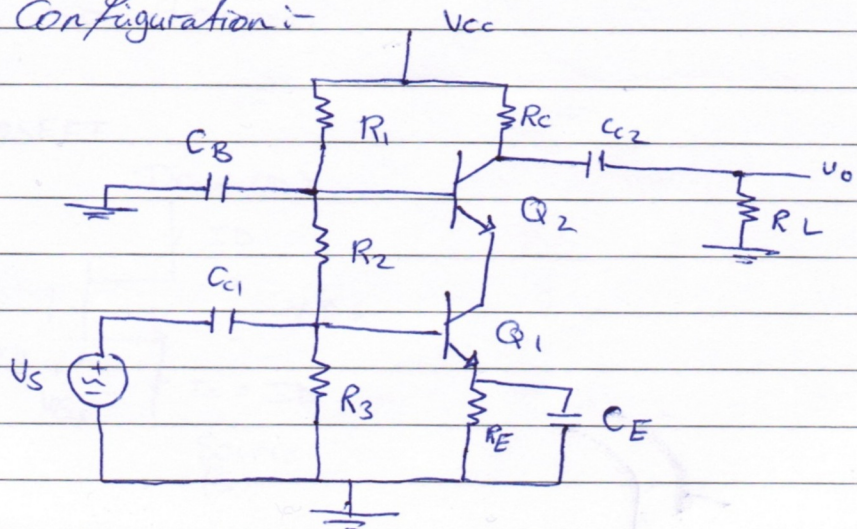 Configuration :-
Vcc
R1
Rc
CB
Cc2
vo
Q2
RL
R2
Cc1
Q1
vs
R3
RE
CE